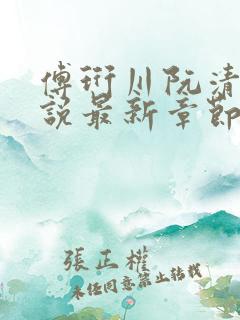 傅衍川阮清
说最新章节
張正權
未经同意禁止转载